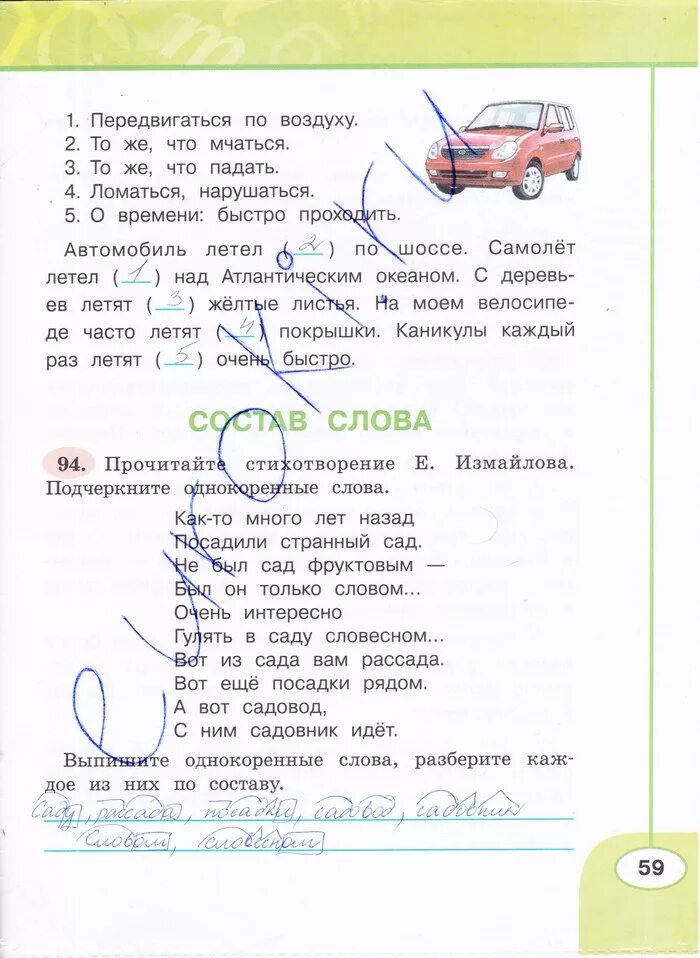 1. Передвигаться по воздуху.
2. То же, что мчаться.
3. То же, что падать.
4. Ломаться, нарушаться.
5. О времени: быстро проходить.
Автомобиль летел (2) по шоссе. Самолёт
летел (1) над Атлантическим океаном. С деревь-
ев летят (3) жёлтые листья. На моем велосипе-
де часто летят (4) покрышки. Каникулы каждый
раз летят (5) очень быстро.
СОСТАВ СЛОВА
94. Прочитайте стихотворение Е. Измайлова.
Подчеркните однокоренные слова.
Как-то много лет назад
Посадили странный сад.
Не был сад фруктовым —
Был он только словом...
Очень интересно
Гулять в саду словесном...
Вот из сада вам рассада.
Вот ещё посадки рядом.
А вот садовод,
С ним садовник идёт.
Выпишите однокоренные слова, разберите каж-
дое из них по составу.
Саду, рассада, посадки, садовод, садовник
Словом, словесном
59